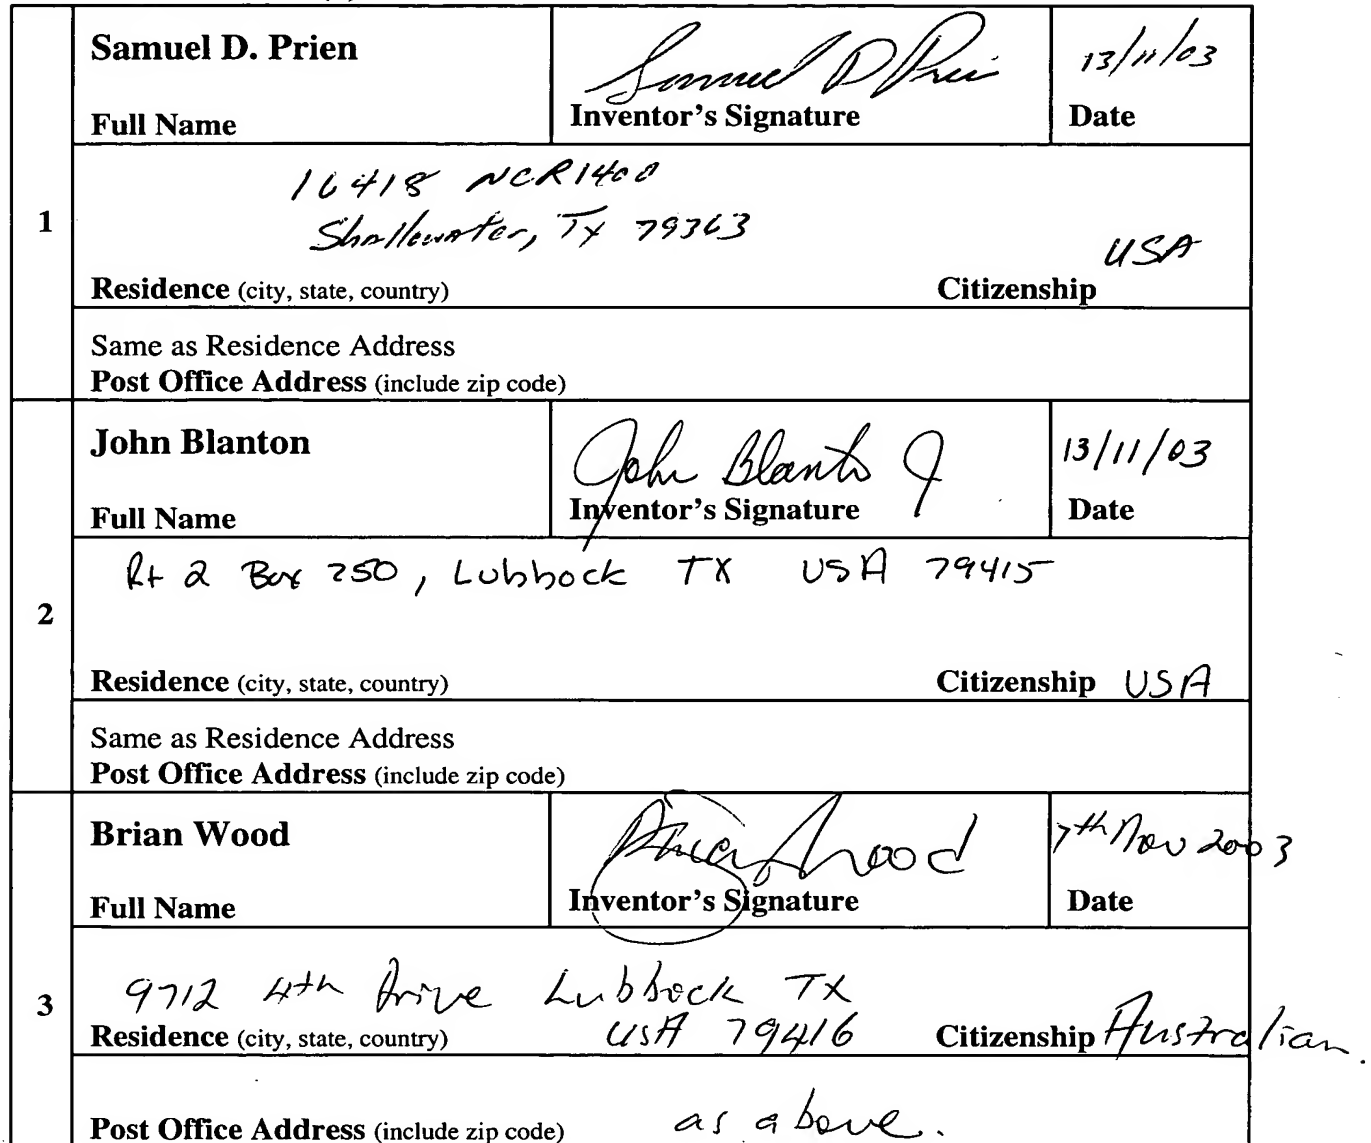 Samuel D. Prien
Samuel D Prien
13/11/03
Full Name
Inventor's Signature
Date
1
16418 NCR1400
Shallowater, Tx 79363
USA
Residence (city, state, country)
Citizenship
Same as Residence Address
Post Office Address (include zip code)
John Blanton
John Blanton J
13/11/03
Full Name
Inventor's Signature
Date
2
Rt 2 Box 250, Lubbock TX USA 79415
Residence (city, state, country)
Citizenship USA
Same as Residence Address
Post Office Address (include zip code)
Brian Wood
Brian Wood
7th Nov 2003
Full Name
Inventor's Signature
Date
3
9712 4th Drive Lubbock TX
USA 79416
Residence (city, state, country)
Citizenship Australian.
Post Office Address (include zip code) as above.